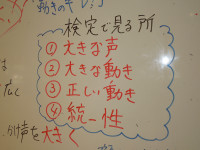 動きのキレ
検定で見る所
① 大きな声
② 大きな動き
③ 正しい動き
④ 統一性
は
広く
かけ声を大きく